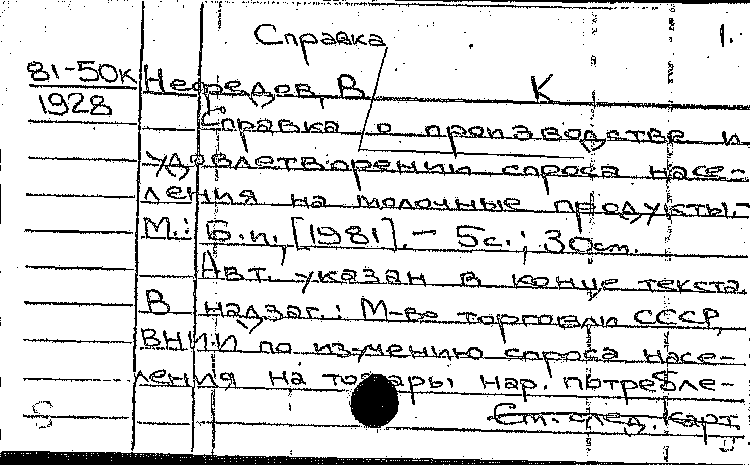 Справка 1.
81-50к Нефедов, В. К
1928
Справка о производстве и
удовлетворении спроса насе-
ления на молочные продукты.-
М.: Б.и., [1981]. - 5с.; 30см.
Авт. указан в конце текста.
В надзаг.: М-во торговли СССР,
ВНИИ по изучению спроса насе-
ления на товары нар. потребле-
См. след. карт.